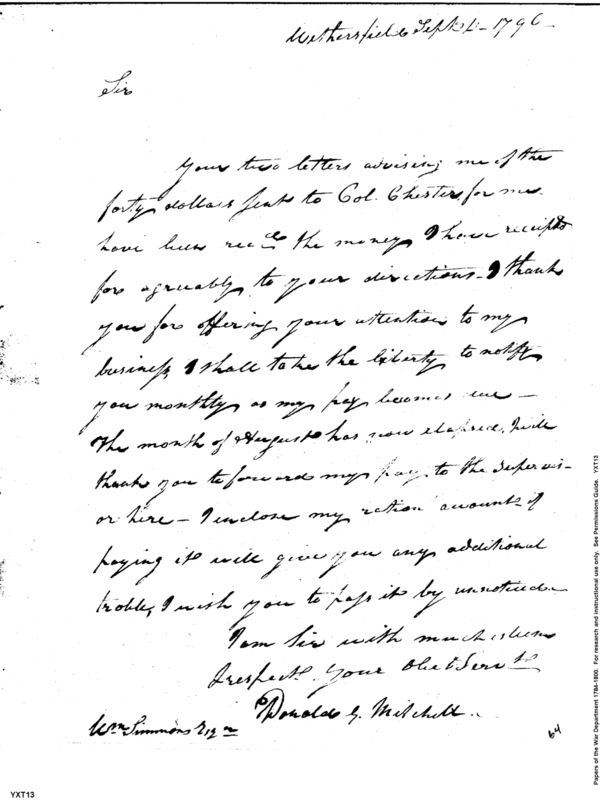 Wethersfield Sept. 4 - 1796 -
Sir
Your two letters advising me of the
forty dollars sent to Col. Chester for me
have been recd. the money I have receipted
for agreuably to your directions - I thank
you for offering your attention to my
business, I shall take the liberty to notify
you monthly as my pay becomes due -
The month of August has now elapsed, I will
thank you to forward my pay to the Supervis-
or here - I inclose my ration accounts if
paying it will give you any additional
troble, I wish you to pass it by unnoticed.
I am Sir with much esteem
& respect. Your Obet Servt
Donald G. Mitchell.
Wm Simmons Esqr
64
YXT13
Papers of the War Department 1784-1800. For research and instructional use only. See Permissions Guide. YXT13